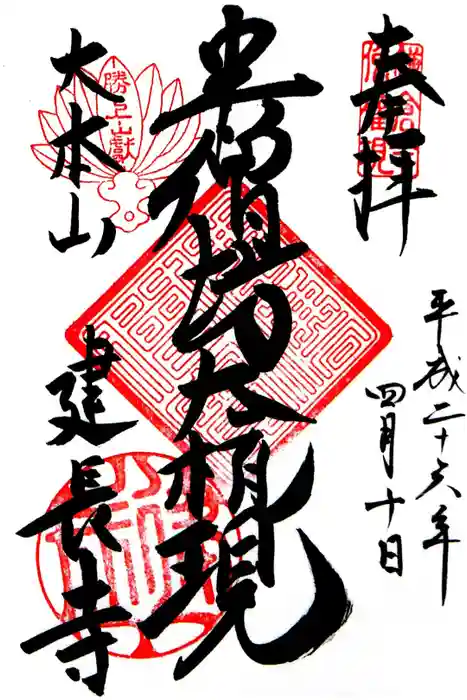 奉拝
平成二十六年
四月十日
半僧坊大権現
勝上嶽
大本山
建長寺